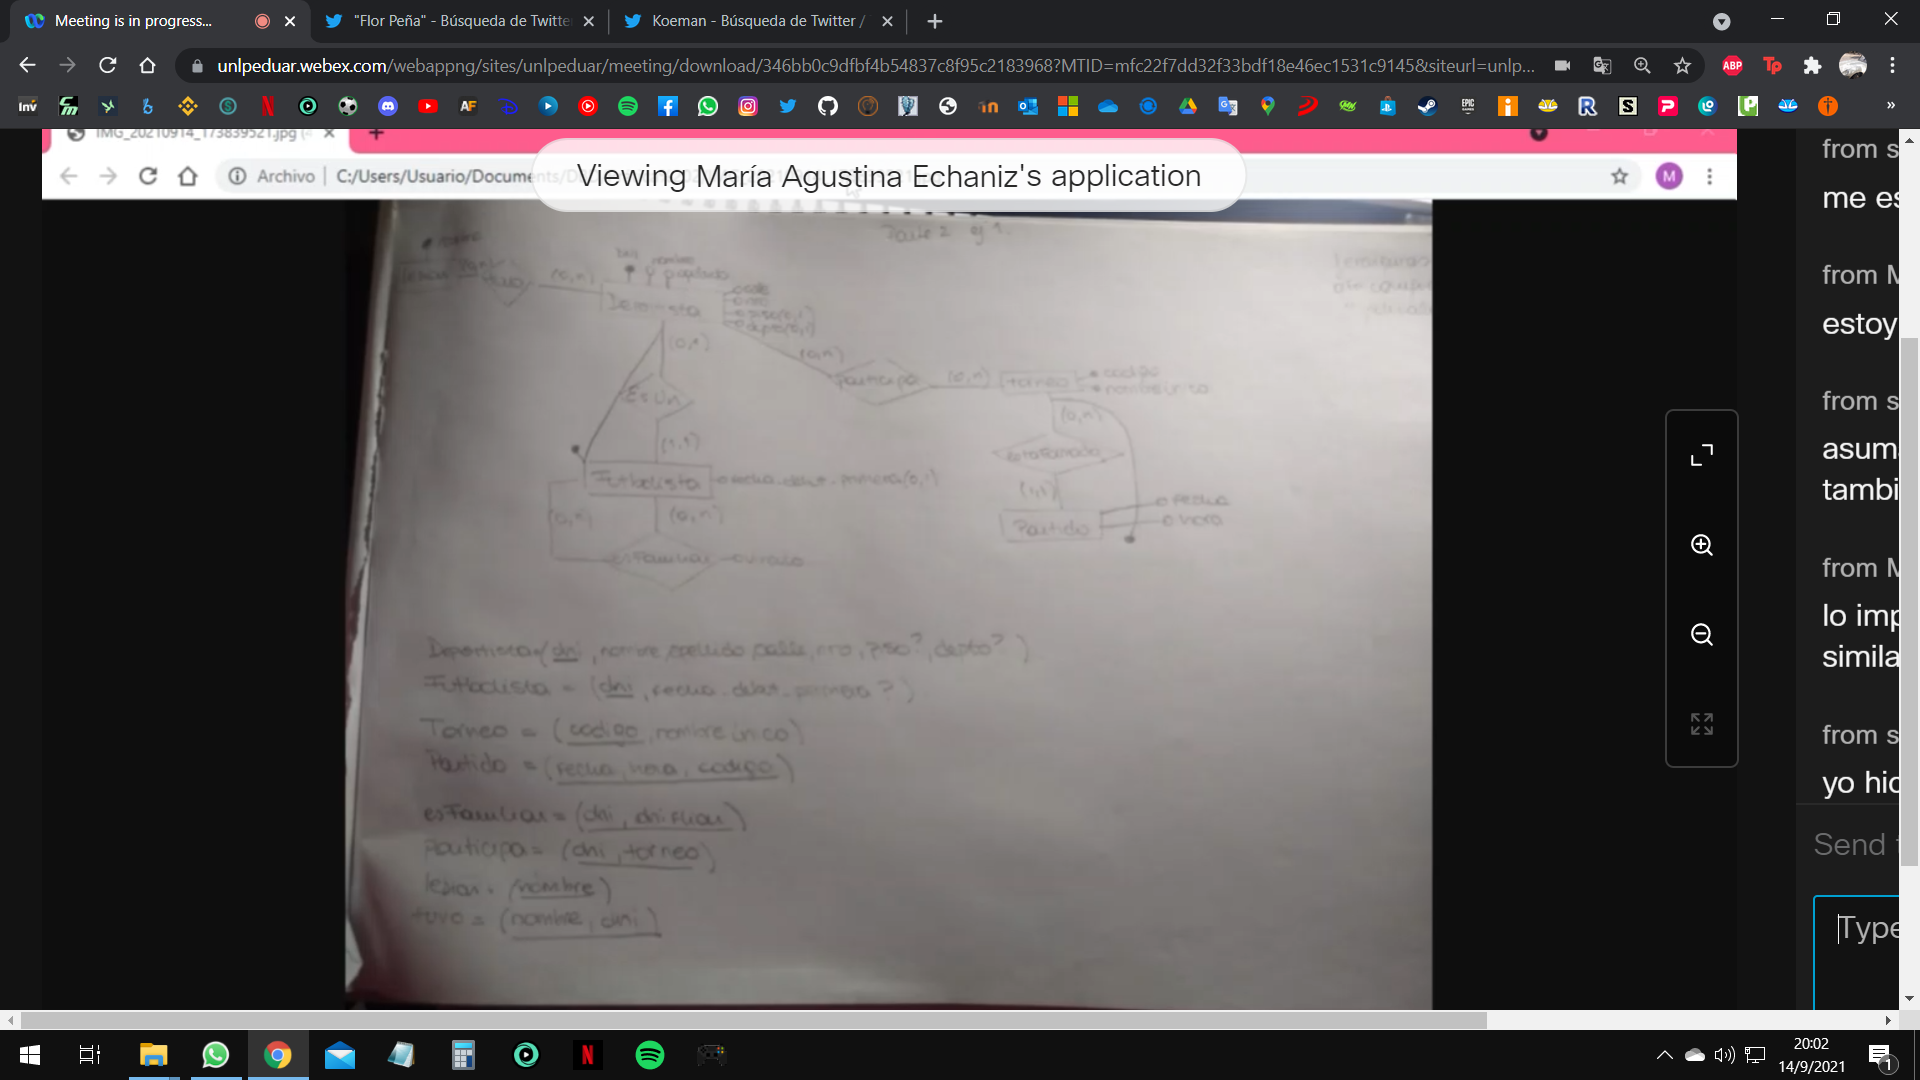 Meeting is in progress...
"Flor Peña" - Búsqueda de Twitte
Koeman - Búsqueda de Twitter /
unlpeduar.webex.com/webappng/sites/unlpeduar/meeting/download/346bb0c9dfbf4b54837c8f95c2183968?MTID=mfc22f7dd32f33bdf18e46ec1531c9145&siteurl=unlp...
IMG_20210914_173839521.jpg (
Archivo | C:/Users/Usuario/Docume
Viewing María Agustina Echaniz's application
M
Parte 2 ej 1.
nombre
dni nombre apellido
tuvo (0,n) Deportista
calle
nro
piso(0,1)
dpto(0,1)
(0,1) (0,n)
Participa (0,n) Torneo
codigo
nombre único
Es Un
(0,n)
(1,1)
Futbolista fecha_debut_primera(0,1)
(1,1)
fecha
Partido hora
(0,n) (0,n)
esFamiliar
Deportista=(dni, nombre, apellido, calle, nro, piso?, depto?)
Futbolista = (dni, fecha_debut_primera?)
Torneo = (codigo, nombre único)
Partido = (fecha, hora, codigo)
esFamiliar = (dni, dniFliar)
Participa = (dni, torneo)
(nombre)
tuvo = (nombre, dni)
from s
me es
from M
estoy
from s
asum
tambi
from M
lo imp
simila
from s
yo hic
Send t
Type
20:02
14/9/2021
1